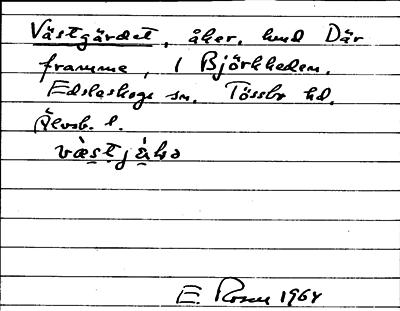 Västgärdet, åker, hmd Där
framme, i Björkheden.
Edsleskogs sn. Tössbo hd.
Älvsb. l.
E. Rosen 1964